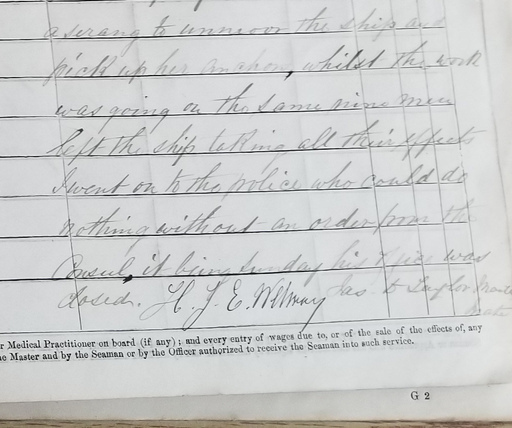 a serang to unmoor the ship and
pick up her anchor, whilst the work
was going on the same nine men
left the ship taking all their effects
I went on to the police who could do
nothing without an order from the
Consul, it being Sunday his office was
closed. H. J. E. Jas. D Taylor
r Medical Practitioner on board (if any); and every entry of wages due to, or of the sale of the effects of, any
e Master and by the Seaman or by the Officer authorized to receive the Seaman into such service.
G 2